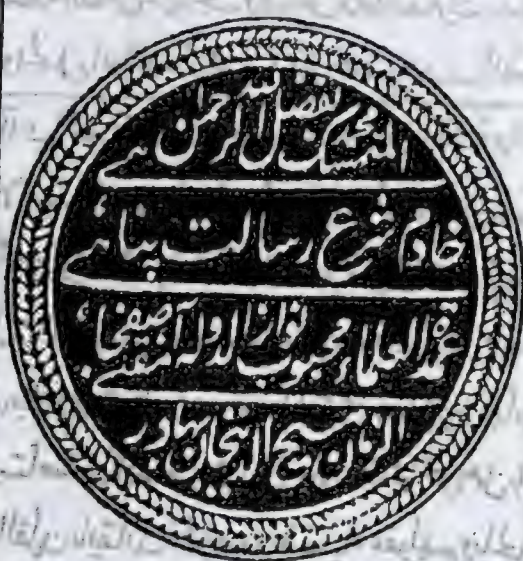 المتمسک بفضل الله الرحمن محمد
خادم شرع رسالت پناهی
عمدة العلماء محبوب نواز الدوله آصفجاه مفتی
الزمان مسیح الدینخان بهادر